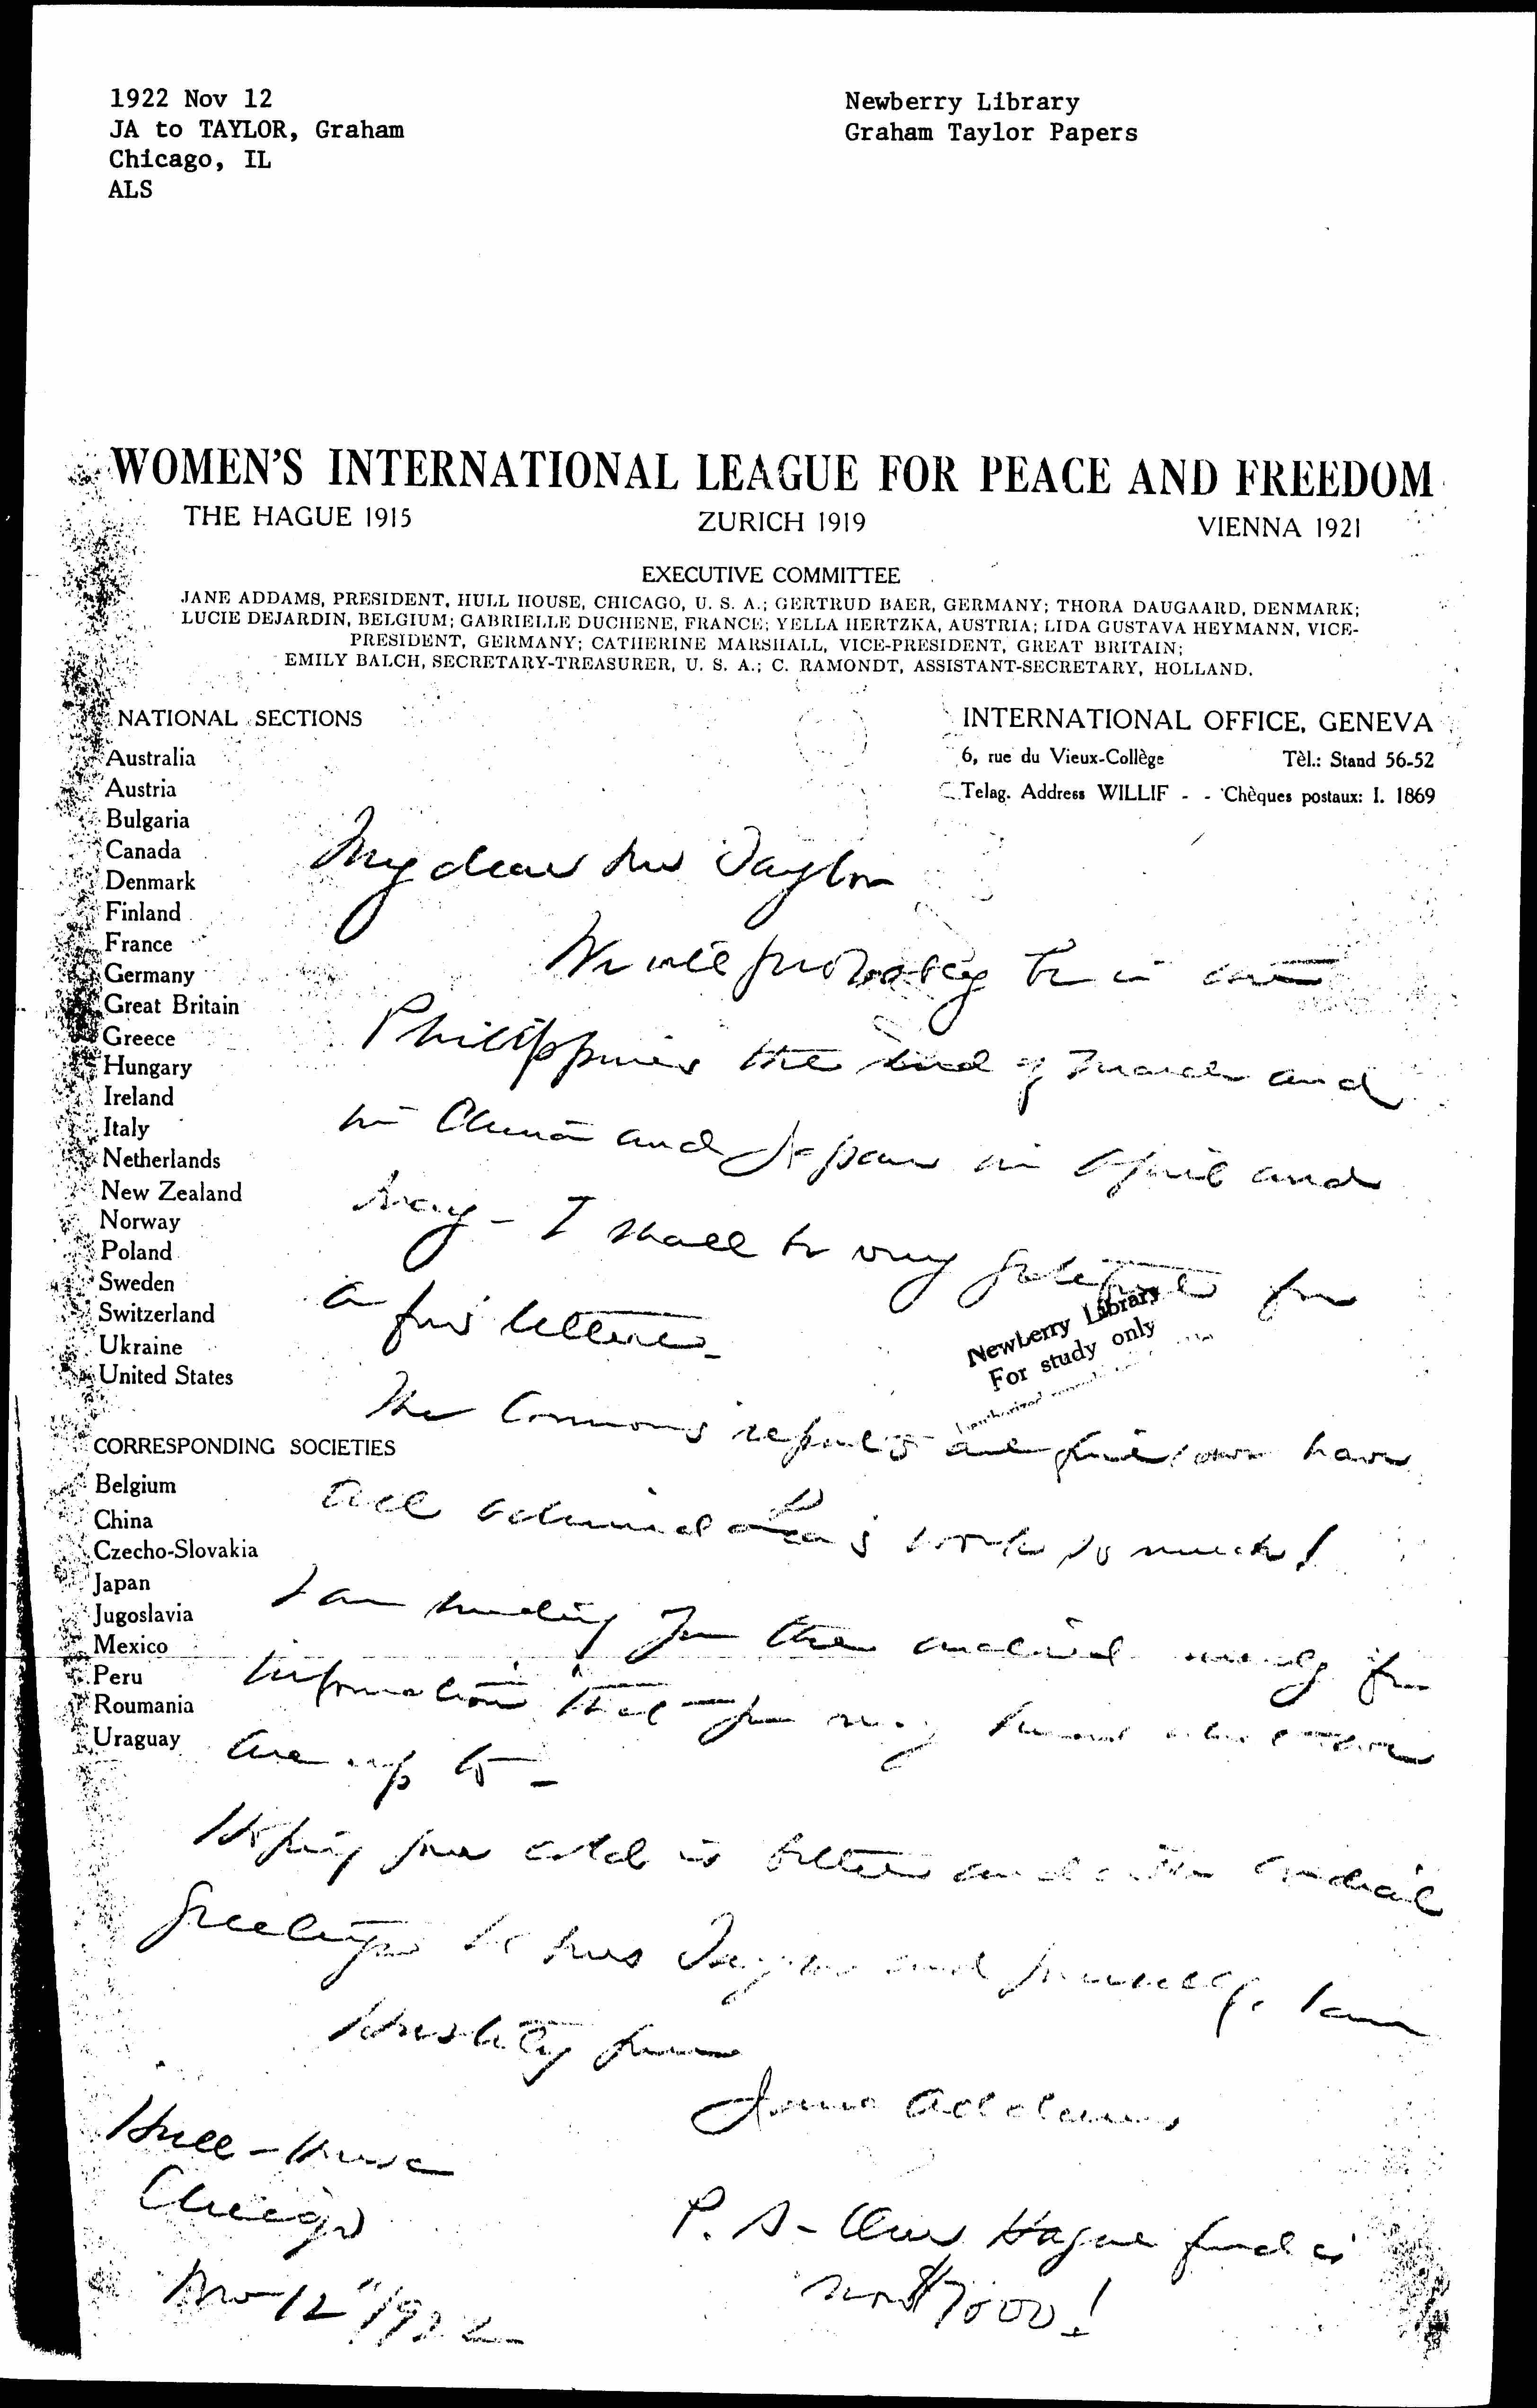 1922 Nov 12
JA to TAYLOR, Graham
Chicago, IL
ALS
Newberry Library
Graham Taylor Papers
WOMEN'S INTERNATIONAL LEAGUE FOR PEACE AND FREEDOM
THE HAGUE 1915 ZURICH 1919 VIENNA 1921
EXECUTIVE COMMITTEE
JANE ADDAMS, PRESIDENT, HULL HOUSE, CHICAGO, U. S. A.; GERTRUD BAER, GERMANY; THORA DAUGAARD, DENMARK;
LUCIE DEJARDIN, BELGIUM; GABRIELLE DUCHENE, FRANCE; YELLA HERTZKA, AUSTRIA; LIDA GUSTAVA HEYMANN, VICE-
PRESIDENT, GERMANY; CATHERINE MARSHALL, VICE-PRESIDENT, GREAT BRITAIN;
EMILY BALCH, SECRETARY-TREASURER, U. S. A.; C. RAMONDT, ASSISTANT-SECRETARY, HOLLAND.
INTERNATIONAL OFFICE, GENEVA
6, rue du Vieux-Collège Tèl.: Stand 56-52
Telag. Address WILLIF - - Chèques postaux: I. 1869
NATIONAL SECTIONS
Australia
Austria
Bulgaria
Canada
Denmark
Finland
France
Germany
Great Britain
Greece
Hungary
Ireland
Italy
Netherlands
New Zealand
Norway
Poland
Sweden
Switzerland
Ukraine
United States
CORRESPONDING SOCIETIES
Belgium
China
Czecho-Slovakia
Japan
Jugoslavia
Mexico
Peru
Roumania
Uraguay
My dear Mr Taylor
We will probably be in the
Philippines the end of March and
in China and Japan in April and
May - I shall be very grateful for
a few letters -
Newberry Library
For study only
The Commons reports are fine, we have
all admired Lea's work so much!
I am sending you the enclosed merely for
information that you may know what we
are up to -
Hoping your cold is better and with cordial
greetings to Mrs Taylor and yourself, I am
Hastily yours
Jane Addams
Hull-House
Chicago
Nov 12" 1922
P. S - Our Hague fund is
now $7000!